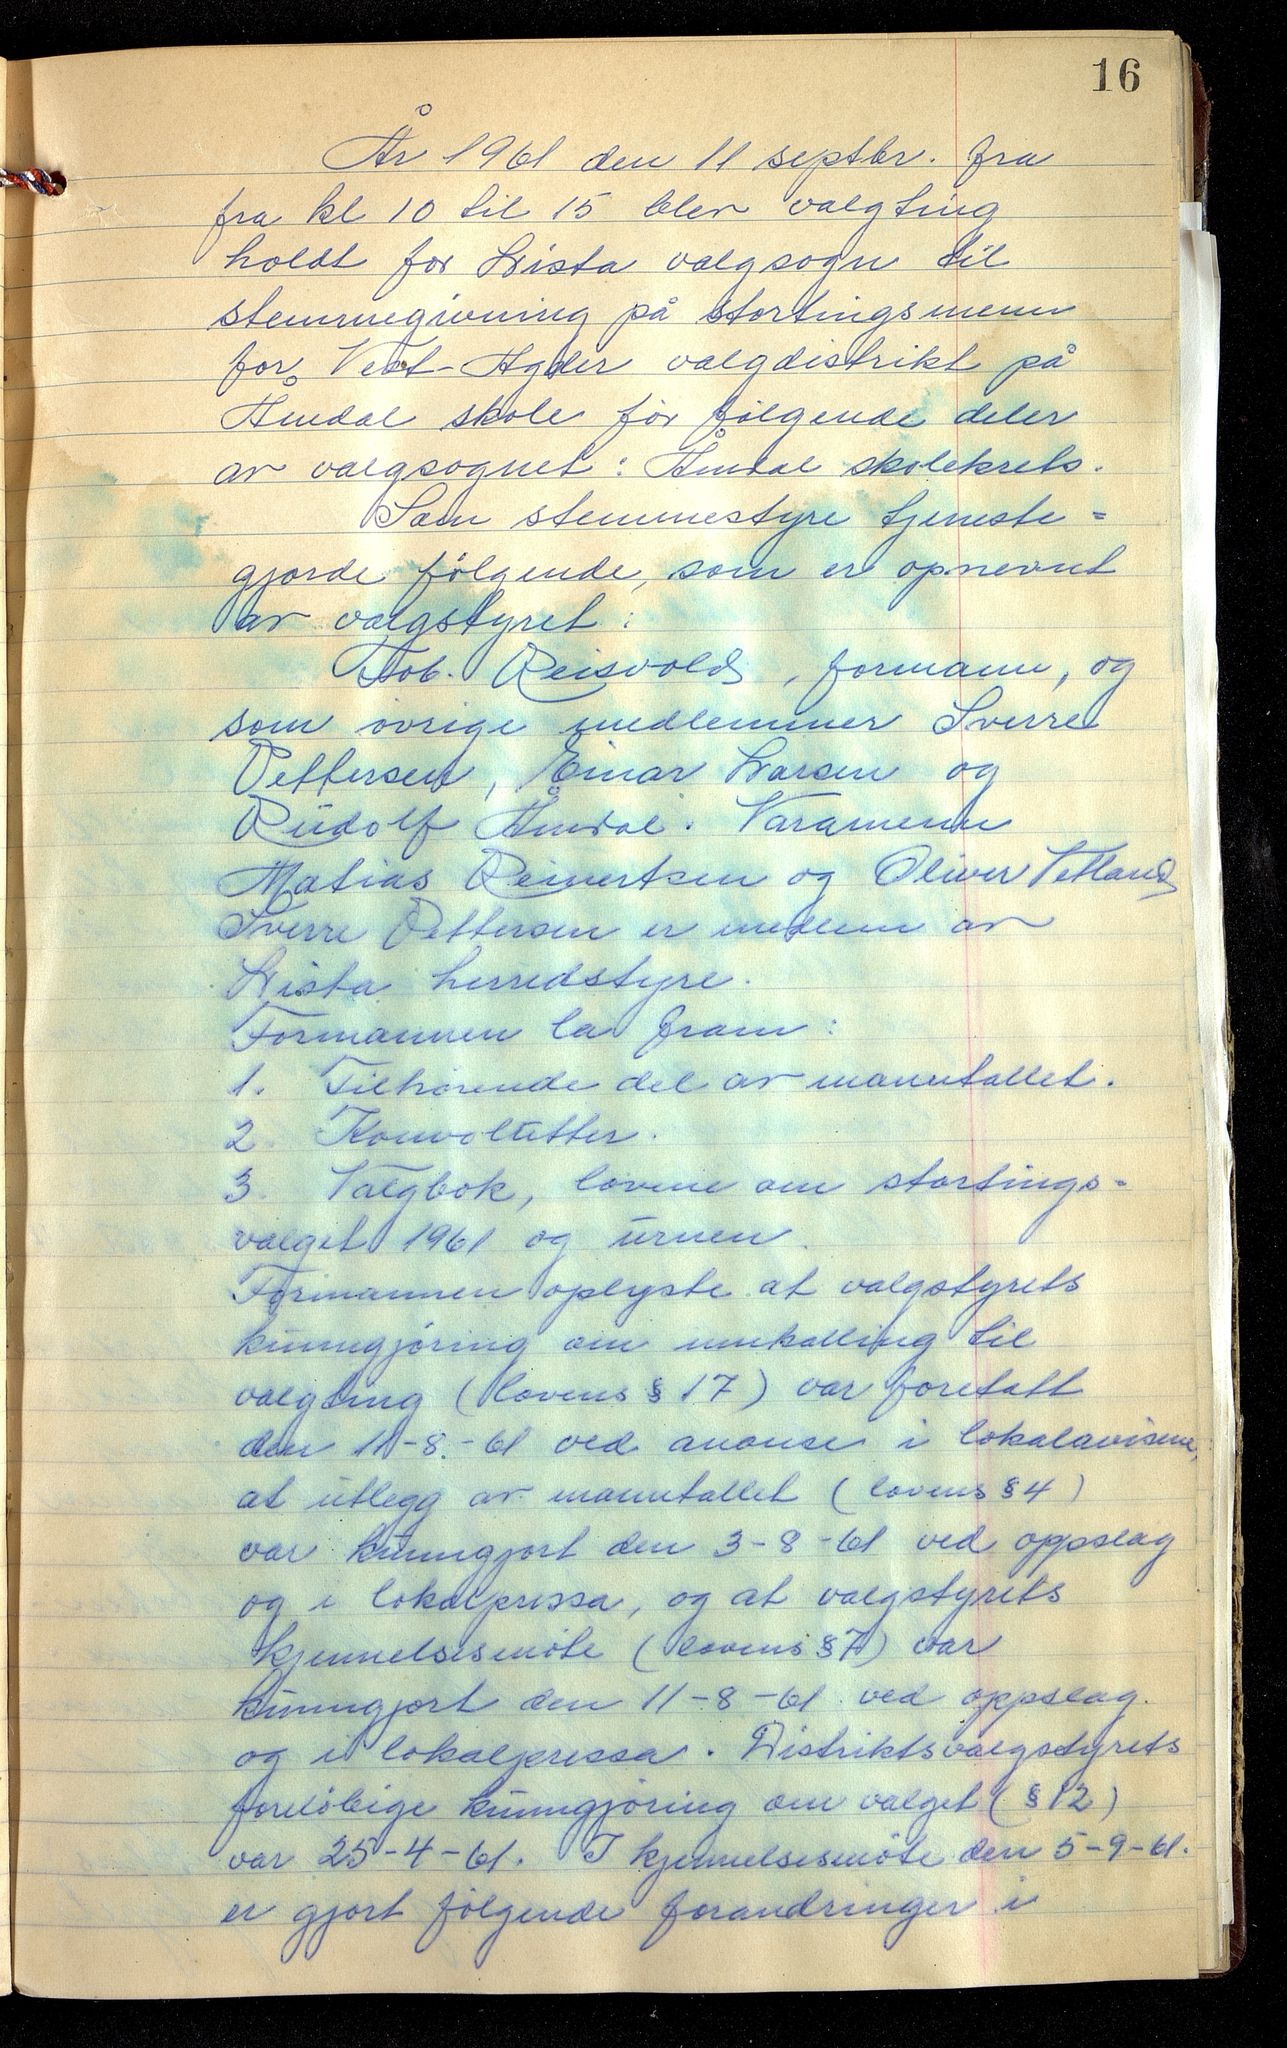 16
År 1961 den 11 septbr. fra
fra kl 10 til 15 blev valgting
holdt for Lista valgsogn til
stemmegivning på stortingsmenn
for Vest-Agder valgdistrikt på
Åmdal skole for følgende deler
av valgsognet: Åmdal skolekrets.
Som stemmestyre tjeneste=
gjorde følgende, som er opnevnt
av valgstyret:
Tob. Reisvold, formann, og
som øvrige medlemmer Sverre
Pettersen, Einar Larsen og
Rudolf Åmdal. Varamenn
Matias Reinertsen og Oliver Vetland
Sverre Pettersen er medlem av
Lista herredstyre.
Formannen la fram:
1. Tilhørende del av manntallet.
2. Konvolutter.
3. Valgbok, lovene om stortings-
valget 1961 og urnen.
Formannen oplyste at valgstyrets
kunngjøring om innkalling til
valgting (lovens § 17) var foretatt
den 11-8.-61 ved anonse i lokalavisene,
at utlegg av manntallet (lovens § 4)
var kunngjort den 3-8-61 ved oppslag
og i lokalpressa, og at valgstyrets
kjennelsesmøte (lovens § 7) var
kunngjort den 11-8-61 ved oppslag.
og i lokalpressa. Distriktsvalgstyrets
foreløbige kunngjøring om valget (§ 12)
var 25-4-61. I kjennelsesmøte den 5-9-61.
er gjort følgende forandringer i